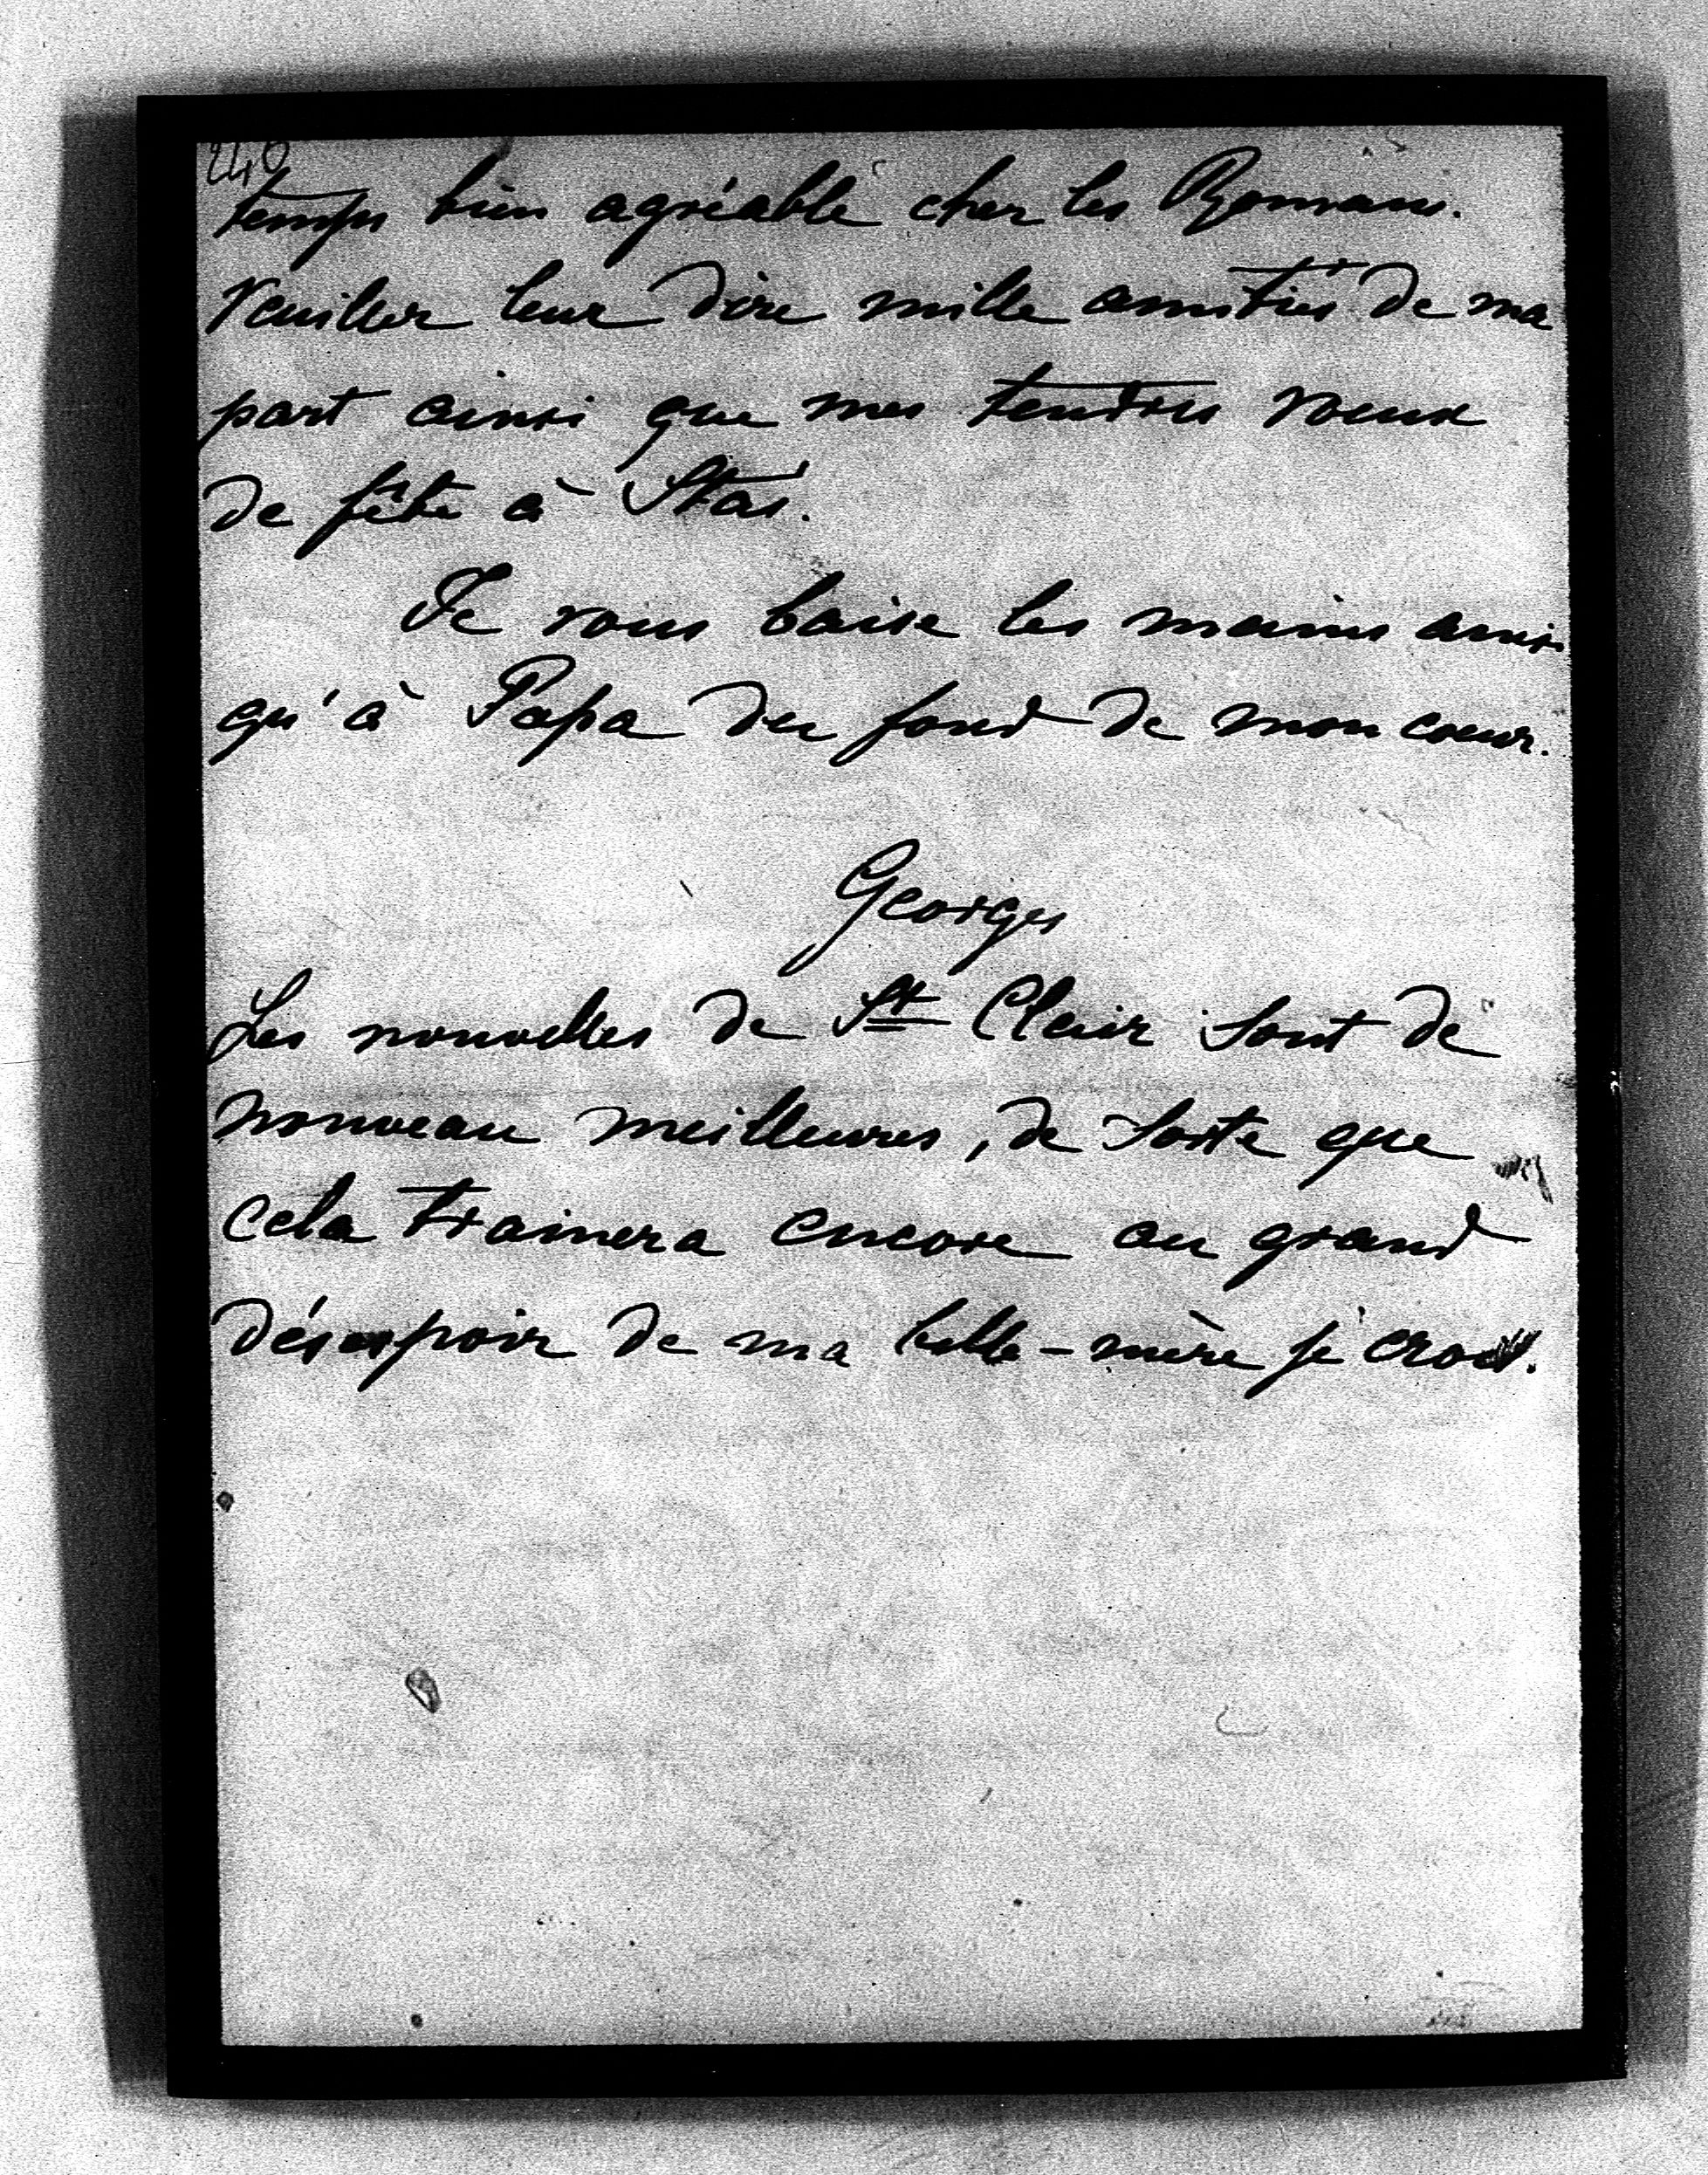 240
temps bien agréable chez les Romans.
Veuillez leur dire mille amitiés de ma
part ainsi que mes tendres voeux
de fête à Stas.
Je vous baise les mains ainsi
qu'à Papa du fond de mon coeur.
Georges
Les nouvelles de St Clair sont de
nouveau meilleures, de sorte que
cela trainera encore au grand
désespoir de ma belle-mère je crois.